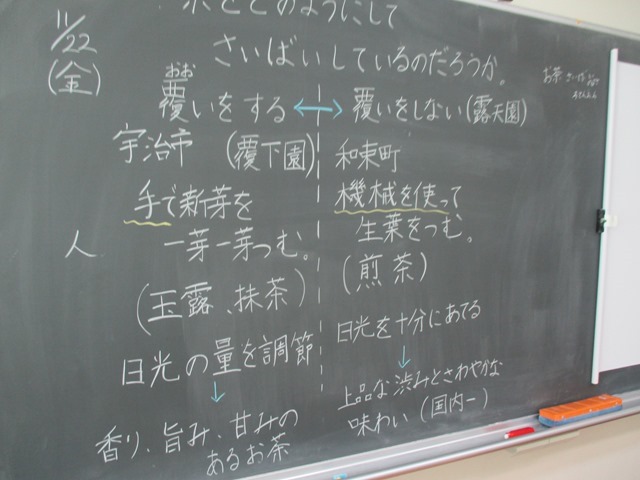 11/22
(金)
をどのようにして
さいばいしているのだろうか。
お茶
おお
覆いをする ↔ 覆いをしない(露天園)
宇治市 (覆下園)
和束町
手で新芽を
一芽一芽つむ。
人
(玉露、抹茶)
機械を使って
生葉をつむ。
(煎茶)
日光の量を調節
↓
香り、旨み、甘みの
あるお茶
日光を十分にあてる
↓
上品な渋みとさわやかな
味わい(国内一)